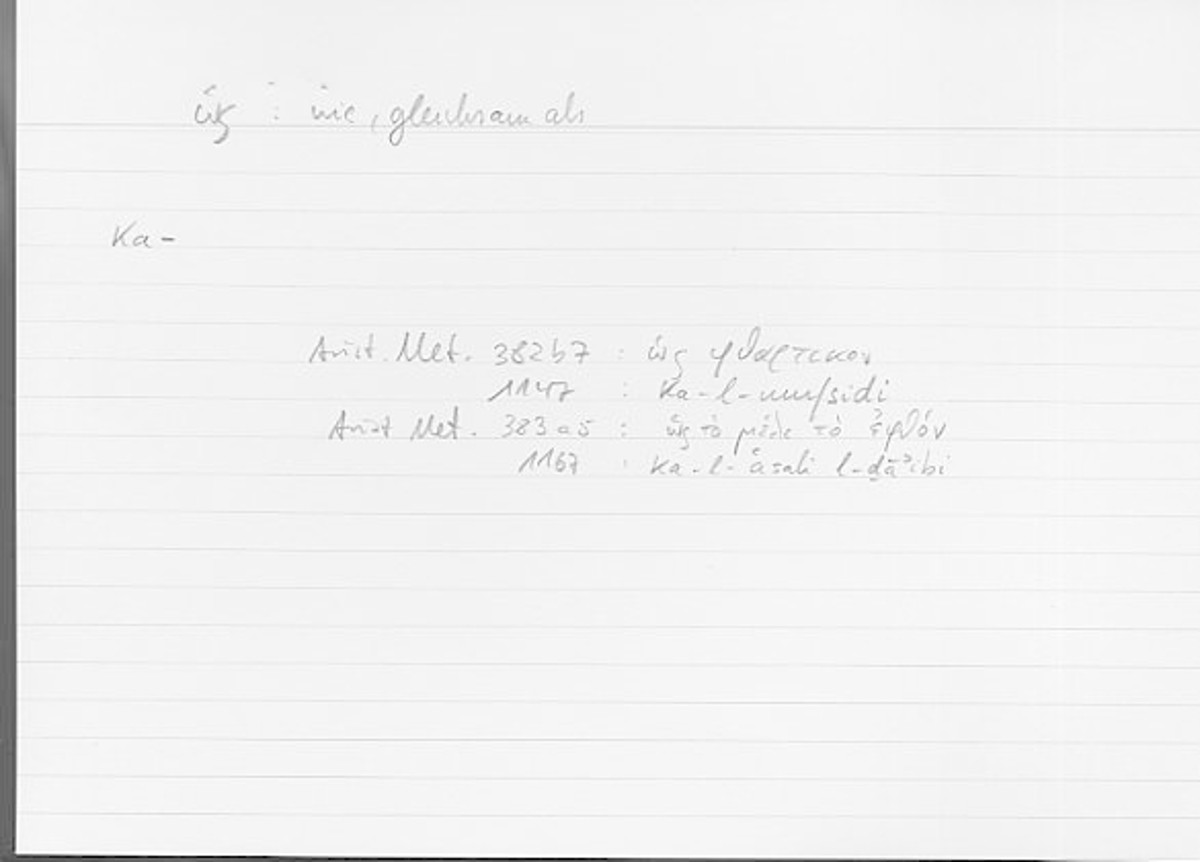 ὡς : wie, gleichsam als
Ka-
Arist. Met. 382b7 : ὡς φθαρτικον
1147 : Ka-l-mufsidi
Arist Met. 383a5 : ὡς τὸ μέλι τὸ ἑφθόν
1167 : Ka-l-ʿasali l-ḏāʾibi